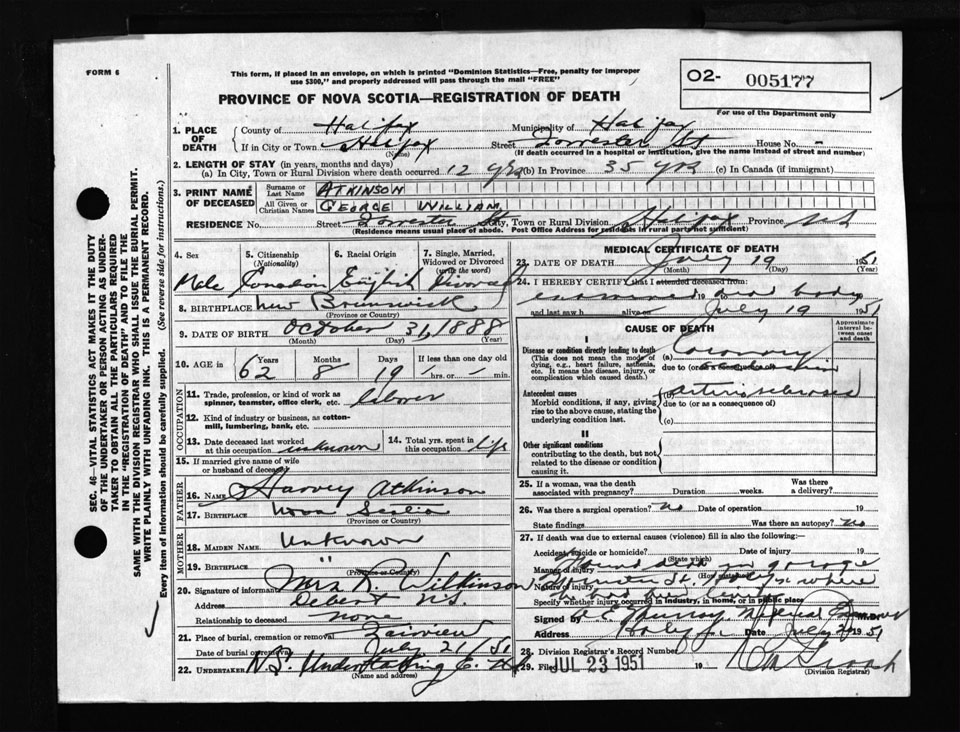 FORM 6
This form, if placed in an envelope, on which is printed "Dominion Statistics—Free, penalty for improper
use $300," and properly addressed will pass through the mail "FREE"
O2- 005177
For use of the Department only
PROVINCE OF NOVA SCOTIA—REGISTRATION OF DEATH
1. PLACE OF DEATH
County of Halifax Municipality of Halifax
If in City or Town Halifax Street Forrester St House No. -
(Name) (If death occurred in a hospital or institution, give the name instead of street and number)
2. LENGTH OF STAY (in years, months and days)
(a) In City, Town or Rural Division where death occurred 12 yrs (b) In Province 35 yrs (c) In Canada (if immigrant)
3. PRINT NAME OF DECEASED
Surname or Last Name ATKINSON
All Given or Christian Names GEORGE WILLIAM
RESIDENCE No. Street Forrester St City, Town or Rural Division Halifax Province NS
(Residence means usual place of abode. Post Office Address for residents in rural parts not sufficient)
4. Sex 5. Citizenship (Nationality) 6. Racial Origin 7. Single, Married, Widowed or Divorced (write the word)
Male Canadian English Divorced
8. BIRTHPLACE New Brunswick
(Province or Country)
9. DATE OF BIRTH October 31, 1888
(Month) (Day) (Year)
10. AGE in Years Months Days If less than one day old
62 8 19 hrs. or min.
OCCUPATION
11. Trade, profession, or kind of work as spinner, teamster, office clerk, etc. labour
12. Kind of industry or business, as cotton-mill, lumbering, bank, etc.
13. Date deceased last worked at this occupation unknown 14. Total yrs. spent in this occupation life
15. If married give name of wife or husband of deceased
FATHER
16. NAME Harvey Atkinson
17. BIRTHPLACE Nova Scotia
(Province or Country)
MOTHER
18. MAIDEN NAME Unknown
19. BIRTHPLACE "
(Province or Country)
20. Signature of informant Mrs R. Wilkinson
Address Debert N.S.
Relationship to deceased none
21. Place of burial, cremation or removal Fairview
Date of burial or removal July 21/51
22. UNDERTAKER N.S. Undertaking Co. Ltd
(Name and address)
MEDICAL CERTIFICATE OF DEATH
23. DATE OF DEATH July 19 1951
(Month) (Day) (Year)
24. I HEREBY CERTIFY that I attended deceased from:
examined 19 body 19
and last saw h alive on July 19 1951
CAUSE OF DEATH
Approximate interval between onset and death
I
Disease or condition directly leading to death (a) Coronary
(This does not mean the mode of dying, e.g., heart failure, asthenia, etc. It means the disease, injury, or complication which caused death.
due to (or as a consequence of)
Antecedent causes (b)
Morbid conditions, if any, giving rise to the above cause, stating the underlying condition last.
due to (or as a consequence of)
(c)
II
Other significant conditions
contributing to the death, but not related to the disease or condition causing it.
25. If a woman, was the death associated with pregnancy? Duration weeks. Was there a delivery?
26. Was there a surgical operation? No Date of operation 19
State findings Was there an autopsy? No
27. If death was due to external causes (violence) fill in also the following:—
Accident, suicide or homicide? Date of injury 19
(State which)
Manner of injury Found dead in garage
(How sustained)
Nature of injury Forrester St. where
he had been living
Specify whether injury occurred in industry, in home, or in public place
Signed by Murray Medical Examiner M.D.
Address Halifax Date July 1951
28. Division Registrar's Record Number
29. Filed JUL 23 1951 19
(Division Registrar)
SEC. 46—VITAL STATISTICS ACT MAKES IT THE DUTY
OF THE UNDERTAKER OR PERSON ACTING AS UNDER-
TAKER TO OBTAIN ALL THE PARTICULARS REQUIRED
IN THE "REGISTRATION OF DEATH" AND TO FILE THE
SAME WITH THE DIVISION REGISTRAR WHO SHALL ISSUE THE BURIAL PERMIT.
WRITE PLAINLY WITH UNFADING INK. THIS IS A PERMANENT RECORD.
Every item of information should be carefully supplied. (See reverse side for instructions.)